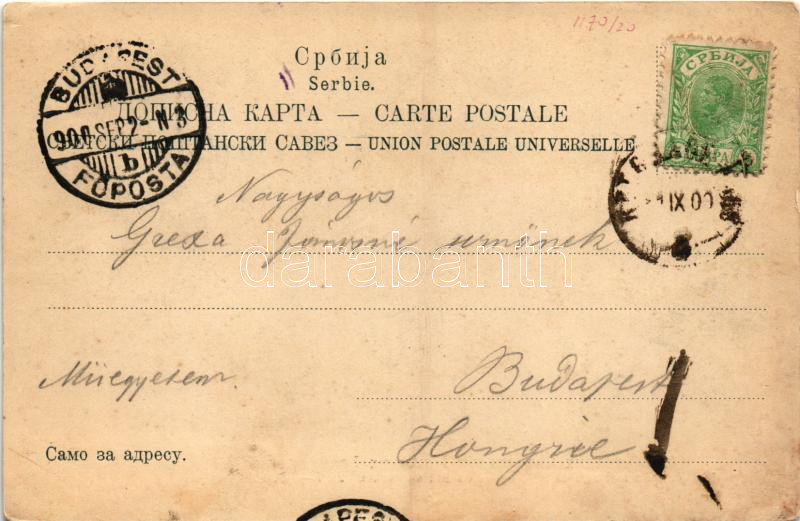 1170/20
Србија
Serbie.
ДОПИСНА КАРТА — CARTE POSTALE
СВЕТСКИ ПОШТАНСКИ САВЕЗ — UNION POSTALE UNIVERSELLE
СРБИЈА
BUDAPEST
900 SEP 2 - N 3
b
FŐPOSTA
IX 00
Nagyságos
Grexa
darabanth
Műegyetem.
Budapest
Hongrie
Само за адресу.